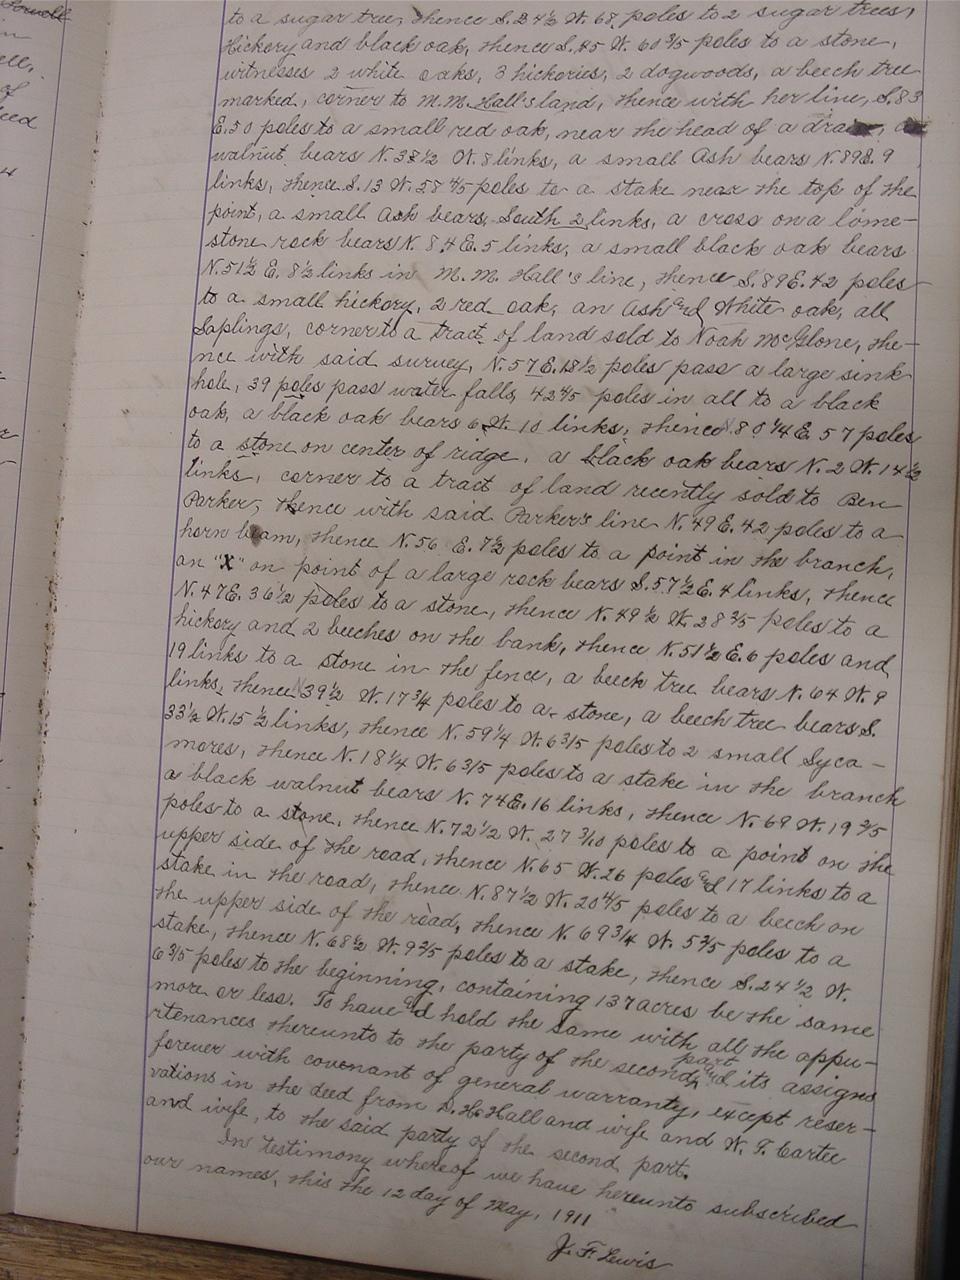 Sowell
to a sugar tree, thence S. 24½ W. 68, poles to 2 sugar trees,
Hickory and black oak, thence S. 45 W. 60 3/5 poles to a stone,
witnesses 2 white oaks, 3 hickories, 2 dogwoods, a beech tree
marked, corner to M. M. Hall's land, thence with her line, S. 83
E. 50 poles to a small red oak, near the head of a drain, a
walnut bears N. 38½ W. 8 links, a small Ash bears N. 89 E. 9
links, thence S. 13 W. 57 4/5 poles to a stake near the top of the
point, a small Ash bears, South 2 links, a cross on a lime-
stone rock bears N. 84 E. 5 links, a small black oak bears
N. 51½ E. 8½ links in M. M. Hall's line, thence S. 89 E. 42 poles
to a small hickory, 2 red oak, an Ash and White oak, all
Saplings, corner to a tract of land sold to Noah McGlone, the-
nce with said survey, N. 57 E. 18½ poles pass a large sink
hole, 39 poles pass water falls, 42 4/5 poles in all to a black
oak, a black oak bears 6 W. 10 links, thence S. 80¼ E. 57 poles
to a stone on center of ridge, a black oak bears N. 2 W. 14½
links, corner to a tract of land recently sold to Ben
Parker, thence with said Parker's line N. 49 E. 42 poles to a
horn beam, thence N. 56 E. 7½ poles to a point in the branch,
an "X" on point of a large rock bears S. 57½ E. 4 links, thence
N. 47 E. 36½ poles to a stone, thence N. 49½ W. 28 3/5 poles to a
hickory and 2 beeches on the bank, thence N. 51½ E. 6 poles and
19 links to a stone in the fence, a beech tree bears N. 64 W. 9
links, thence N 39½ W. 17¾ poles to a stone, a beech tree bears S.
33½ W. 15½ links, thence N. 59¼ W. 6 3/5 poles to 2 small Syca-
mores, thence N. 18¼ W. 6 3/5 poles to a stake in the branch
a black walnut bears N. 74 E. 16 links, thence N. 69 W. 19 3/5
poles to a stone, thence N. 72½ W. 27 3/10 poles to a point on the
upper side of the road, thence N. 65 W. 26 poles and 17 links to a
stake in the road, thence N. 87½ W. 20 4/5 poles to a beech on
the upper side of the road, thence N. 69¾ W. 5 3/5 poles to a
stake, thence N. 68½ W. 9 3/5 poles to a stake, thence S. 24½ W.
6 3/5 poles to the beginning, containing 137 acres be the same
more or less. To have and hold the same with all the appu-
rtenances thereunto to the party of the second part and its assigns
forever with covenant of general warranty, except reser-
vations in the deed from D. H. Hall and wife and W. F. Cartee
and wife, to the said party of the second part.
In testimony whereof we have hereunto subscribed
our names, this the 12 day of May, 1911
J. F. Lewis